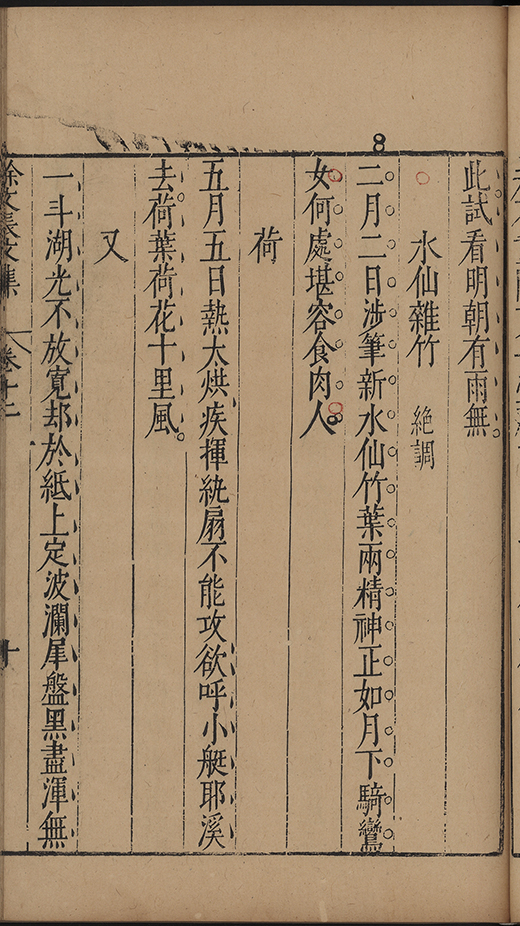 8
此試看明朝有雨無
水仙雜竹 絕調
二月二日涉筆新水仙竹葉兩精神正如月下騎鸞
女何處堪容食肉人
荷
五月五日熱太烘疾揮紈扇不能攻欲呼小艇耶溪
去荷葉荷花十里風
又
一斗湖光不放寬却於紙上定波瀾犀盤黑盡渾無
徐文長文集 卷十二 十